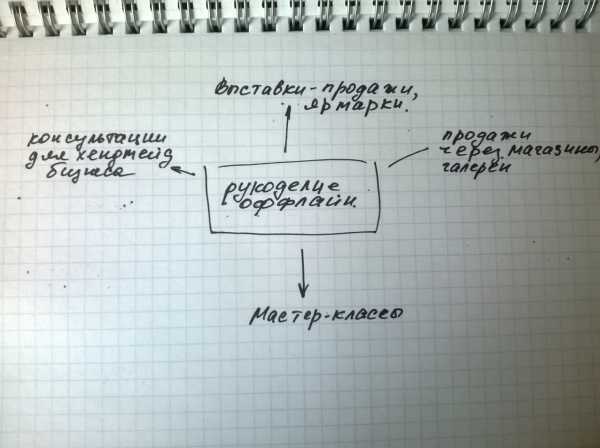 Выставки-продажи,
ярмарки.
консультации
для хендмейд
бизнеса
продажи
через магазины,
галереи
рукоделие
оффлайн.
Мастер-классы